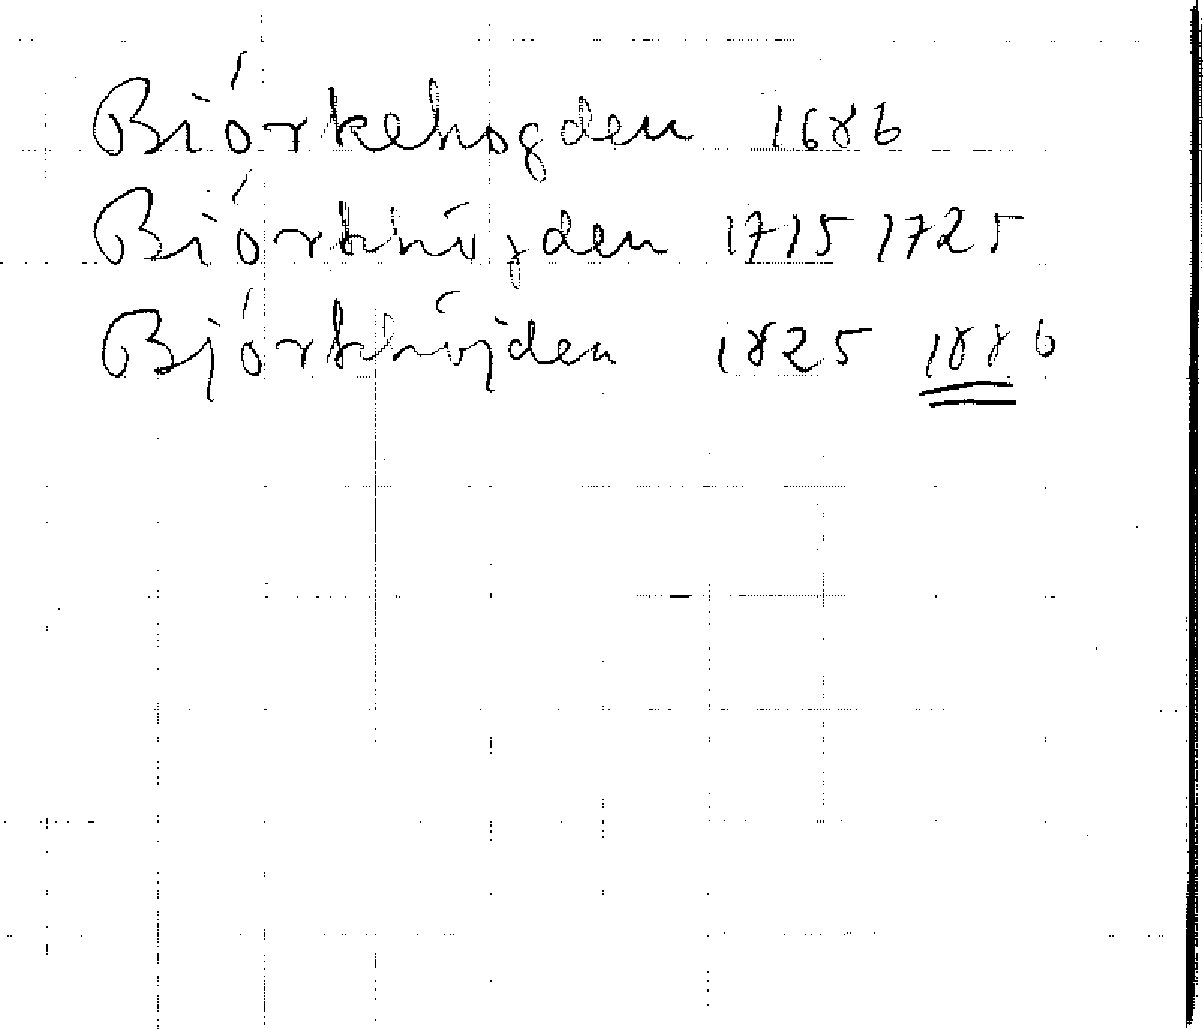 Biörkehogden 1686
Biörkhögden 1715 1725
Björkhöjden 1825 1886